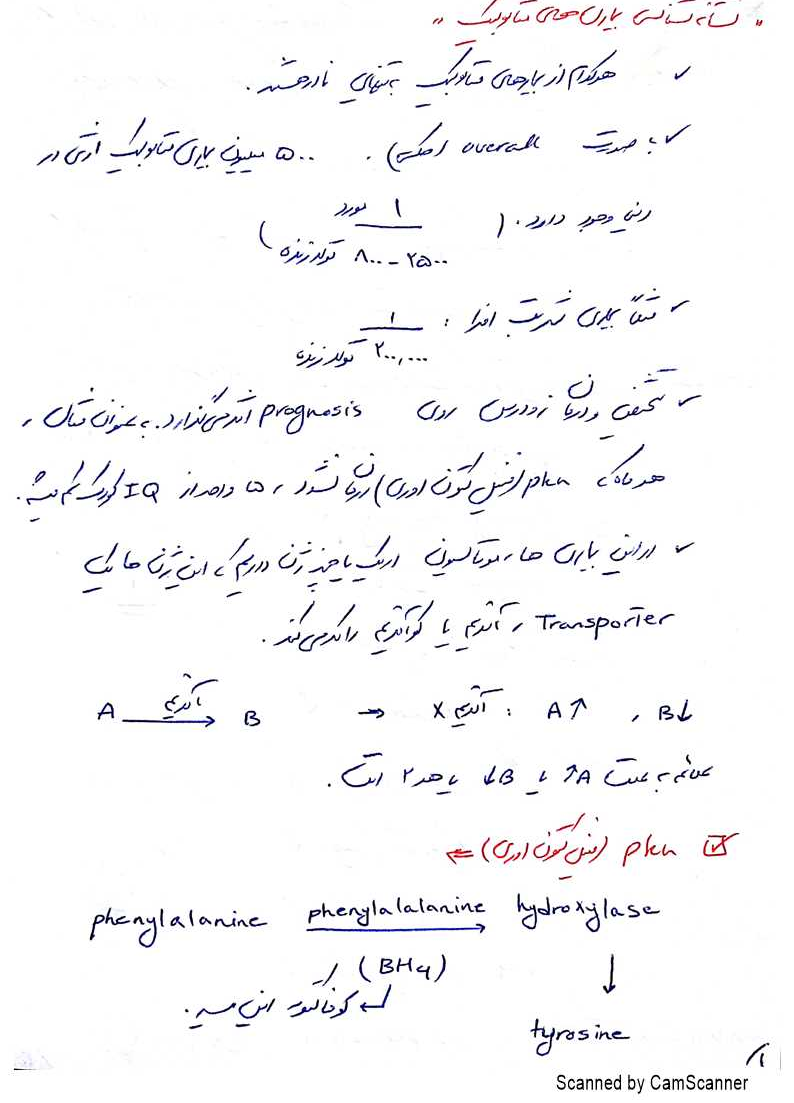 " نشانه شناسی بیماری های متابولیک "
✓ هرکدام از بیماریهای متابولیک به تنهایی نادر هستند.
✓ به صورت overall (حدکلی)، ۵۰۰ میلیون بیماری متابولیک ارثی در
دنیا وجود دارد. (۱ مورد
۸۰۰ - ۲۵۰۰ تولد زنده)
✓ مثلاً بیماری شربت افرا : ۱
۲۰۰,۰۰۰ تولد زنده
✓ تشخیص و درمان زودرس روی prognosis اثر می‌گذارد. به عنوان مثال ،
هر ماه که pku (فنیل کتون اوری) درمان نشود ، ۵ واحد از IQ کودک کم میشه.
✓ در این بیماری ها ، موتاسیون در یک یا چند ژن داریم که این ژن ها یک
Transporter ، آنزیم یا کوآنزیم را کد می کند.
A آنزیم → B → آنزیم X : A↑ , B↓
علائم به علت A↑ یا B↓ یا هر ۲ است.
☑ pku (فنیل کتون اوری) ⇐
phenylalanine phenylalalanine hydroxylase
(BH4)
↓
↳ کوفاکتور این مسیر.
tyrosine
۱/
Scanned by CamScanner